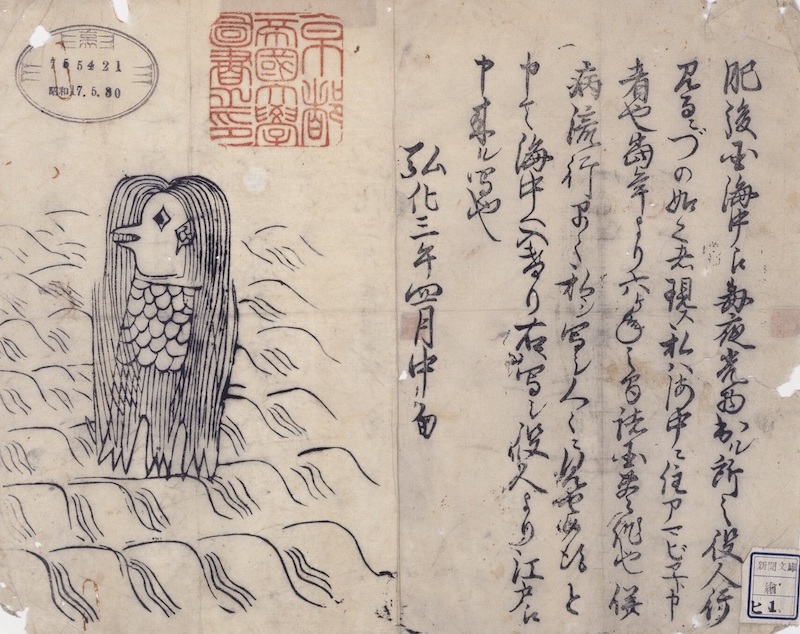 肥後国海中え毎夜光物出ル所之役人行
見るニづの如く者現ス私ハ海中ニ住アマビヱト申
者也当年より六ヶ年之間諸国豊作也併
病流行早々私ヲ写シ人々ニ見セ候得と
申て海中へ入けり右写シ役人より江戸え
申来ル写也
弘化三年四月中旬
京都
帝國大學
圖書之印
165421
昭和17.5.30
新聞文庫
繪
ヒ1